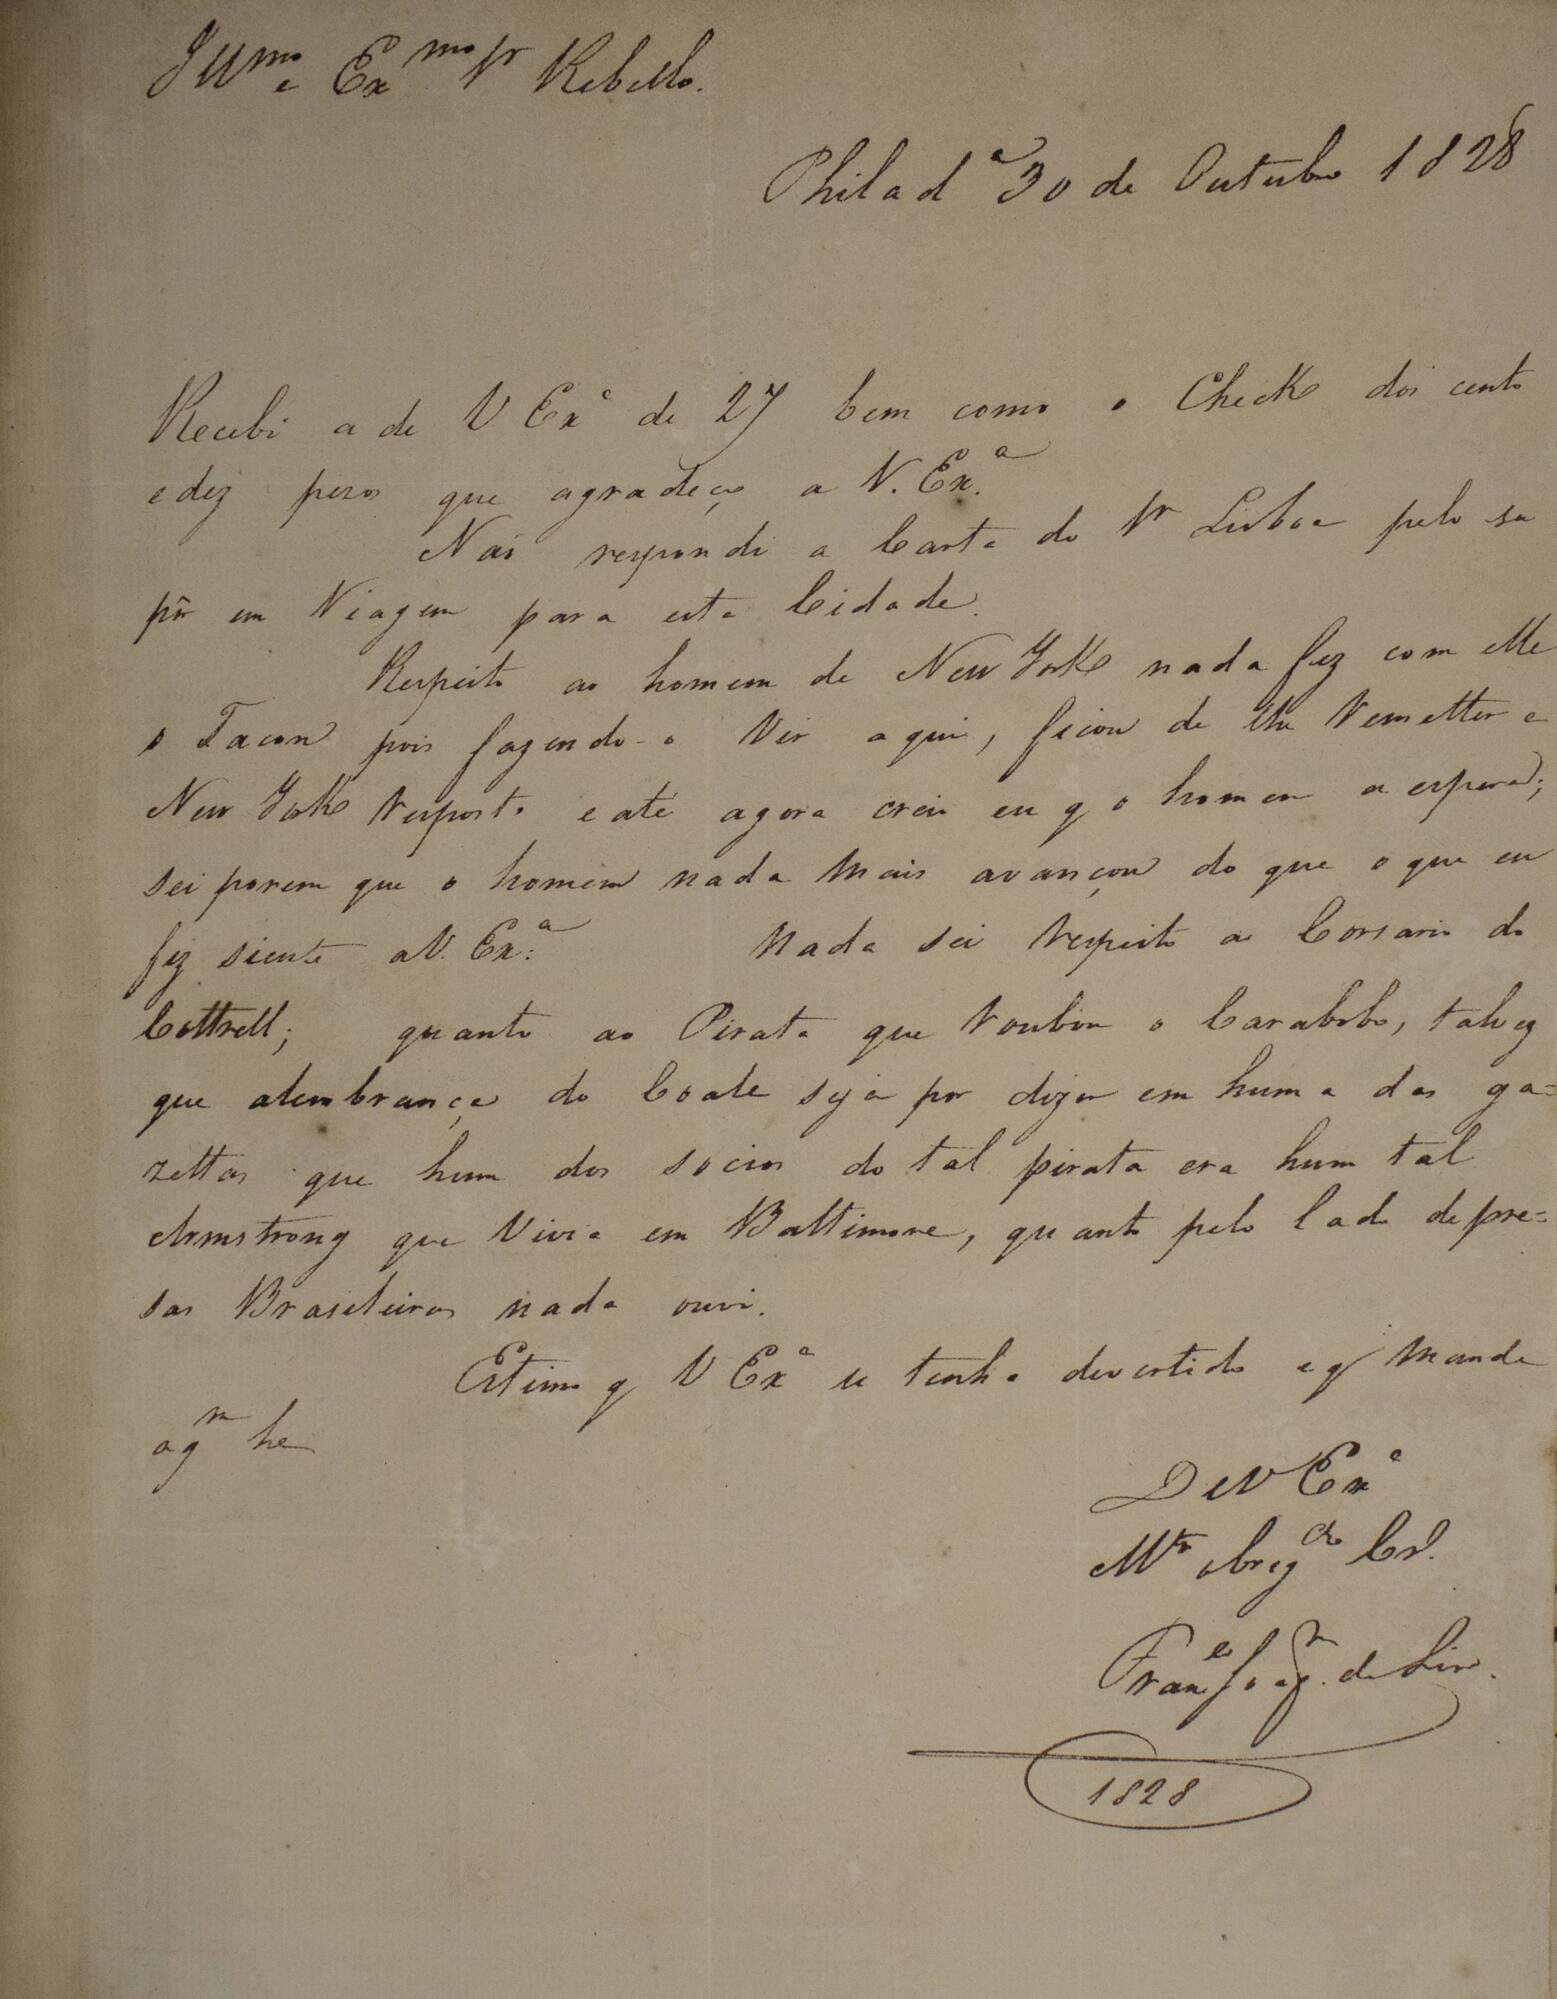 Illmo e Exmo Sr Rebello.
Philada 30 de Outubro 1828
Recebi a de V Exa de 27 bem como o Check dos cento
e dez pezos que agradeço a V. Exa.
Não respondi a Carta do Sr Lisboa pelo su
pôr em Viagem para esta Cidade.
Respeito ao homem de New York nada fez com elle
o Tacon pois fazendo-o Vir aqui, ficou de lhe Remetter a
New York Resposta e até agora creio eu q o homem a espera;
sei porem que o homem nada mais avançou do que o que eu
fiz siente a V. Exa. Nada sei Respeito ao Corsario do
Cottrell; quanto ao Pirata que Roubou o Carabobo, talvez
que alembrança do Coale seja por dizer em huma das ga=
zettas que hum dos socios do tal pirata era hum tal
Armstrong que Vivia em Baltimore, quanto pelo lado de pre=
sas Brasileiras nada ouvi.
Estimo q V Exa se tenha divertido e q Mande
a qm he
De V Exa
Mto obrigdo Cro.
Franco Joaqm. de Lima.
1828